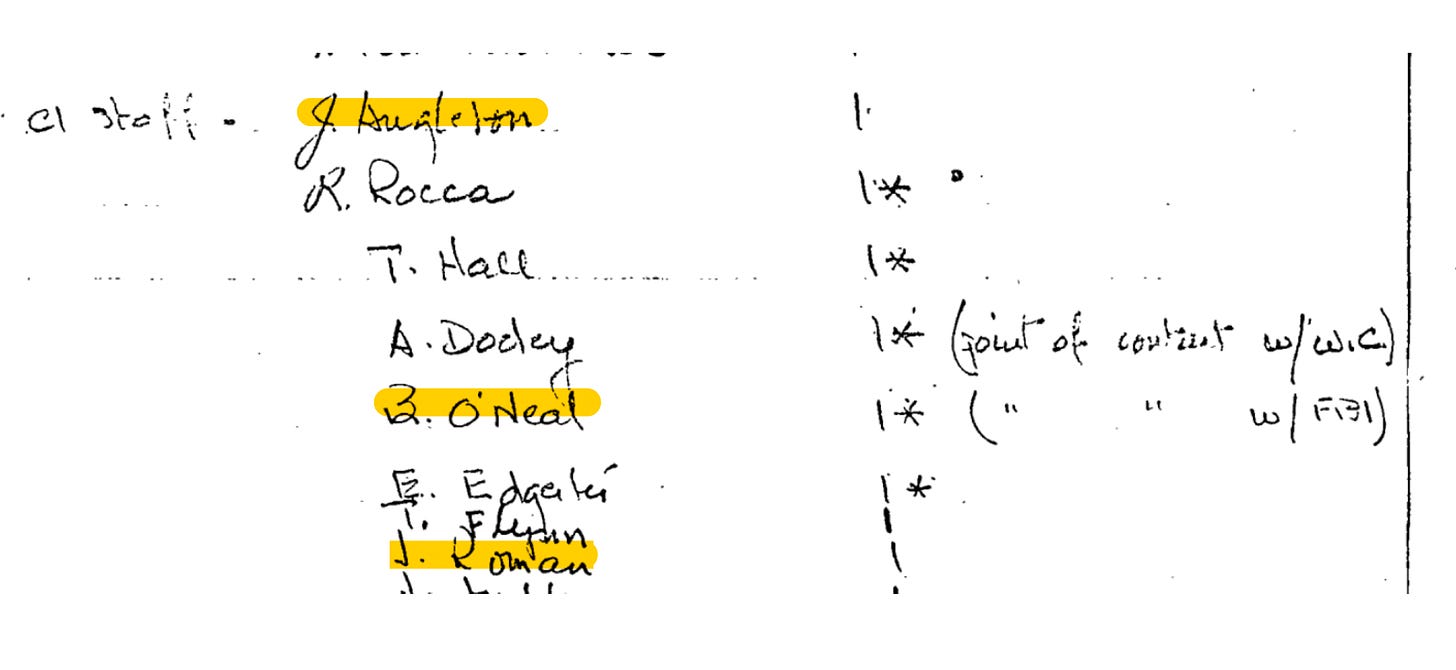 CI Staff - J. Angleton |
R. Rocca |*
T. Hall |*
A. Dooley |* (point of contact w/ W.C.)
B. O'Neal |* (" " w/ FBI)
E. |*
T. Flynn |
J. Roman |